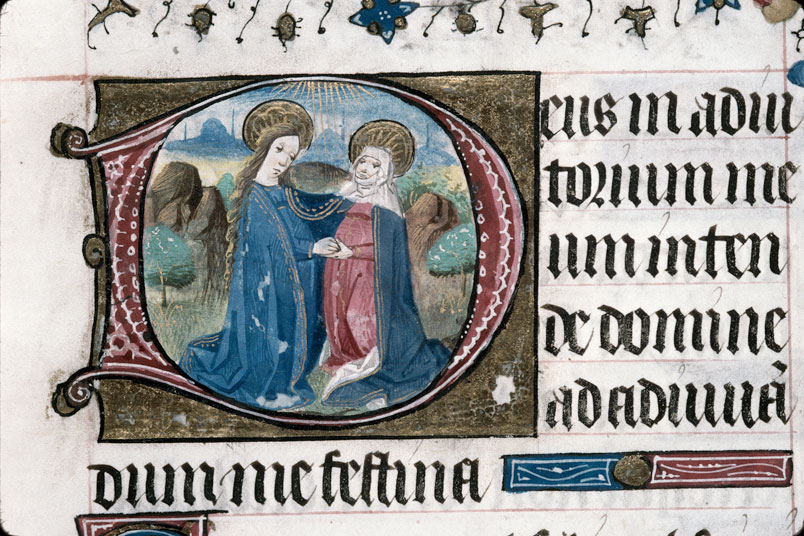 Deus in adiu
torium me
um inten
de domine
ad adiuuā
dum me festina